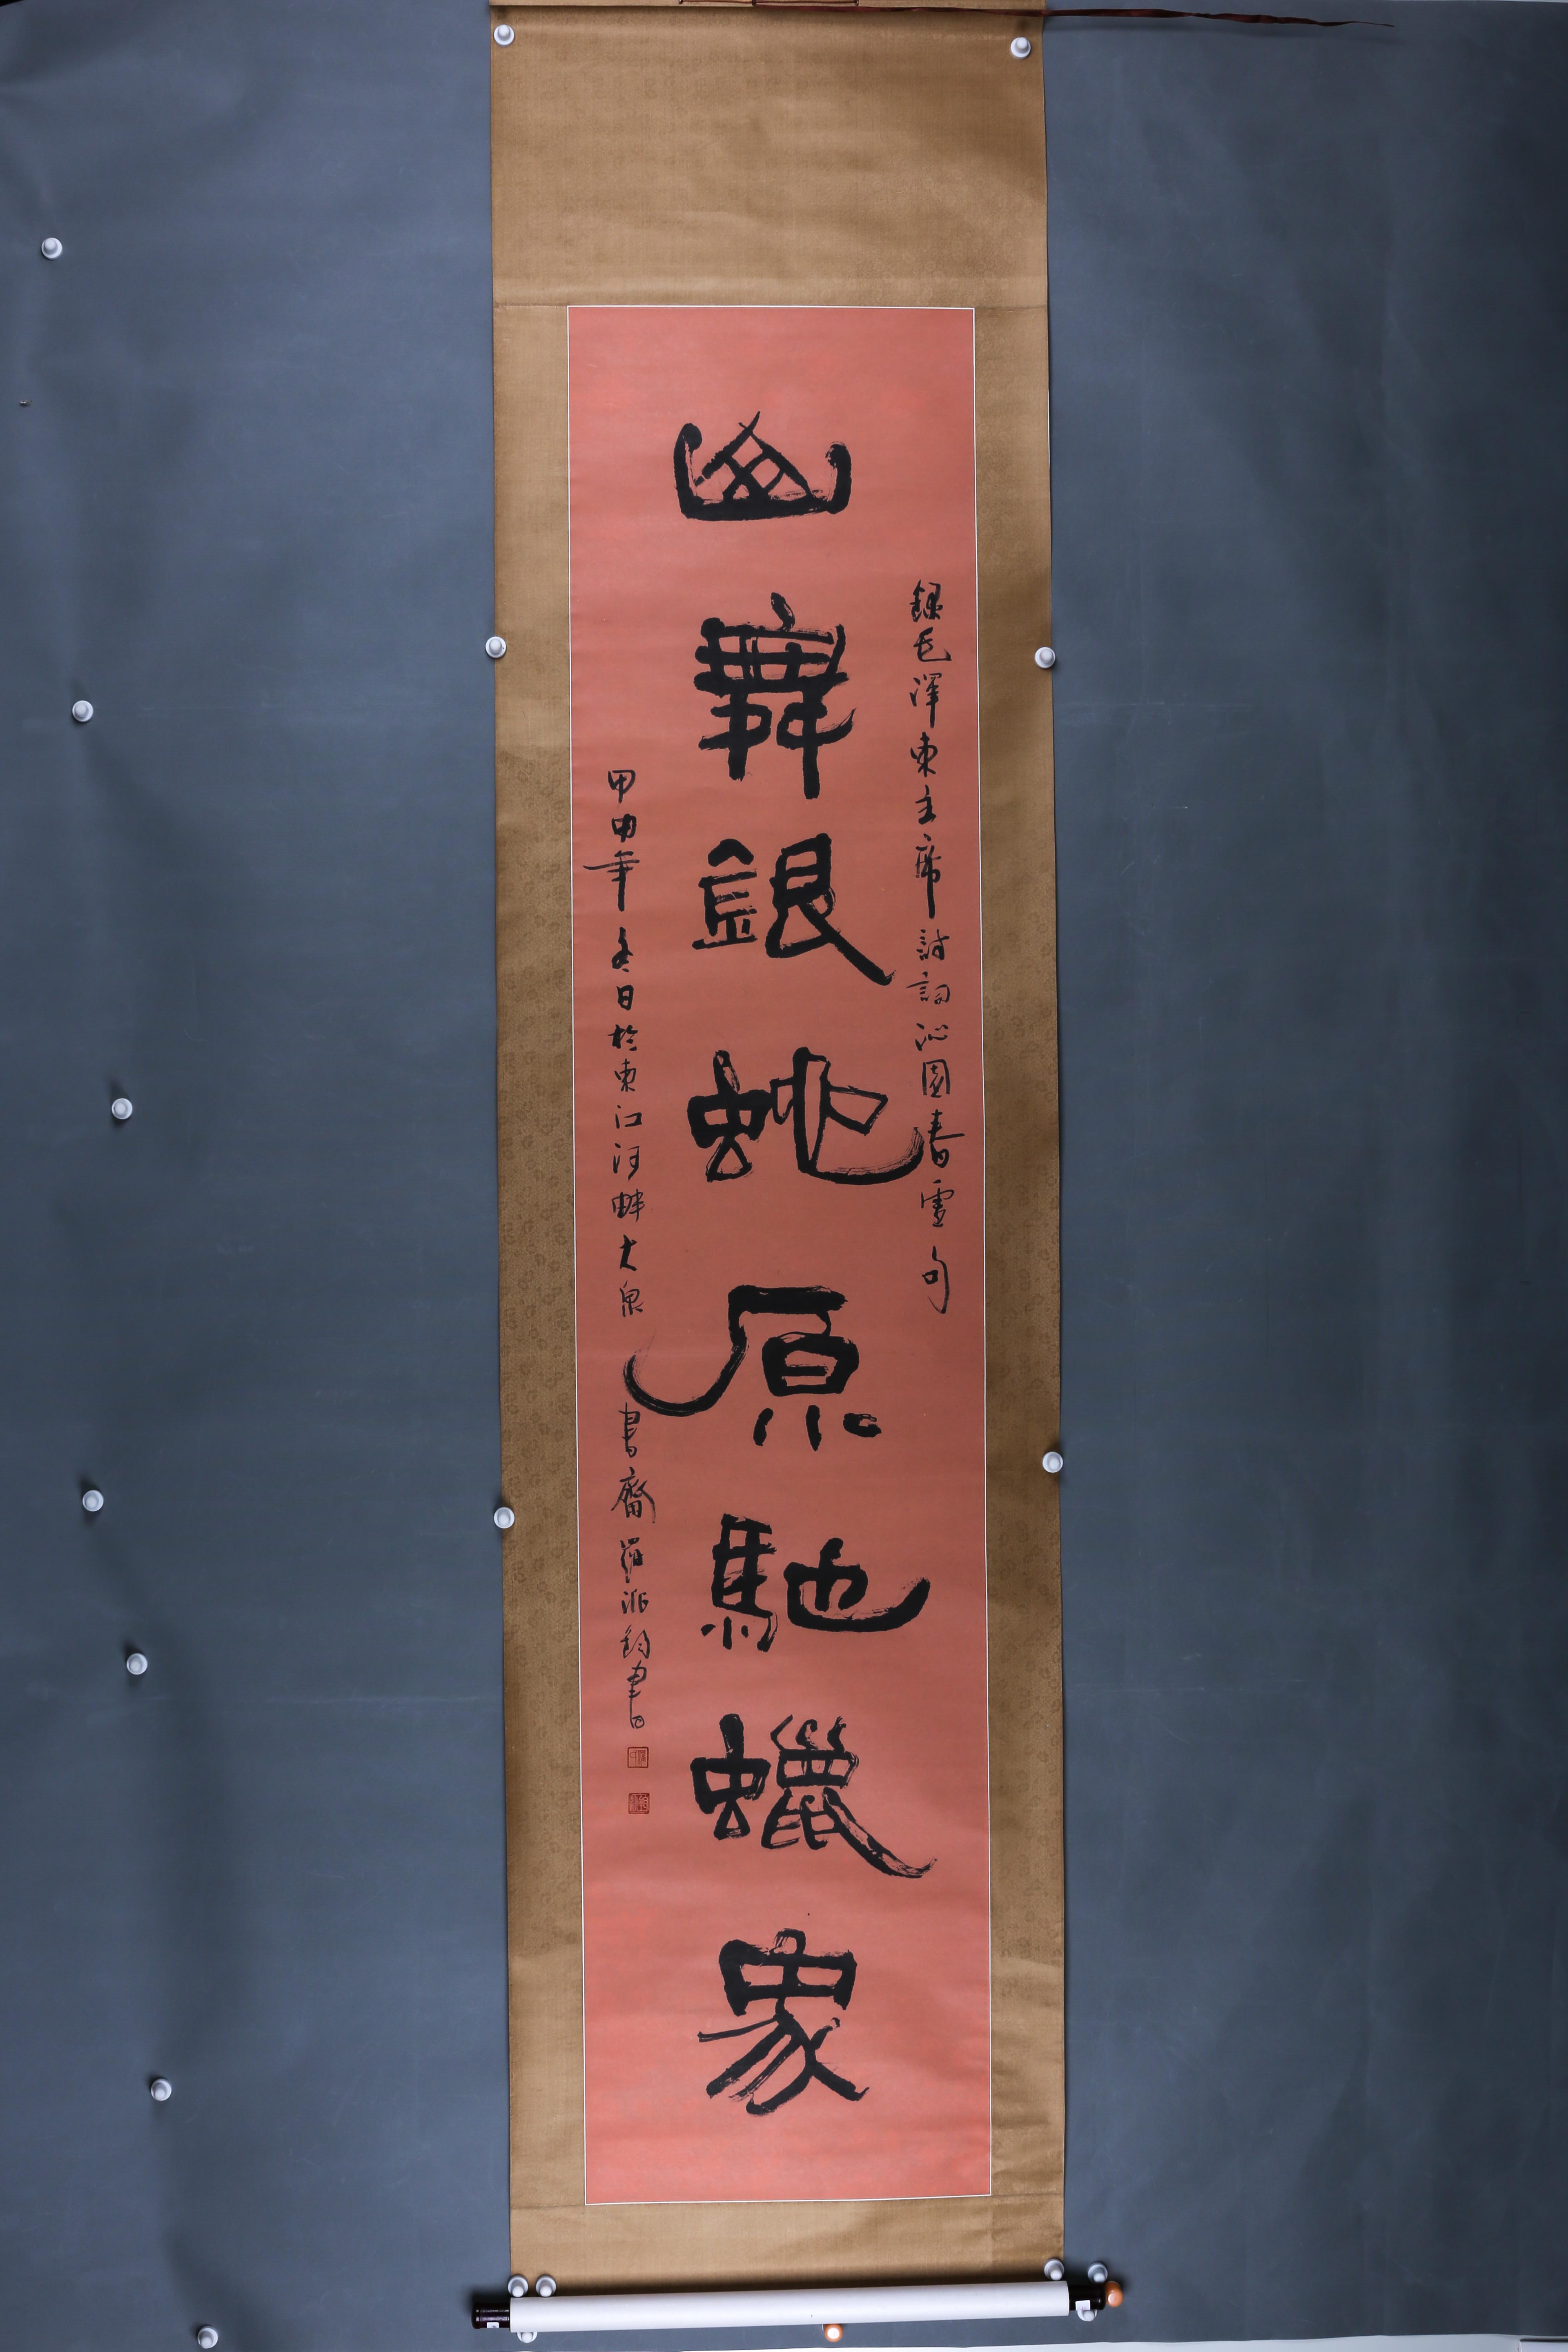 錄毛澤東主席詩詞沁園春雪句
山舞銀蛇原馳蠟象
甲申年冬日於東江河畔大泉書齋羅派鈞書